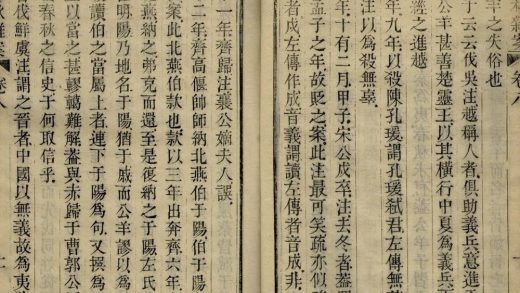 羊之失俗也
子云云伐吳注越稱人者俱助義兵意進于
公羊甚善楚靈王以其橫行中夏為義兵
之進越
年九年以殺陳孔瑗謂孔瑗弒君左傳無
注以為殺無辜
年十有二月甲子宋公戌卒注去冬者蓋
孟子之年故貶之案此注最可笑疏亦似
者戌左傳作成音義謂讀左傳者音成非
一年齊歸注襄公嫡夫人誤
二年齊高偃帥師納北燕伯于陽伯于陽
案此北燕伯款也款以三年出奔齊六年
燕納之弗克而還至是復納之于陽左氏
明陽乃地名于陽猶于戚而公羊謬以為
讀伯之當屬上者連下于陽為句又撰為
以富之甚繆轕難解蓋與赤歸于曹郭公
春秋之信史于何取信乎
伐鮮虞注謂之晉者中國以無義故為夷
卷八